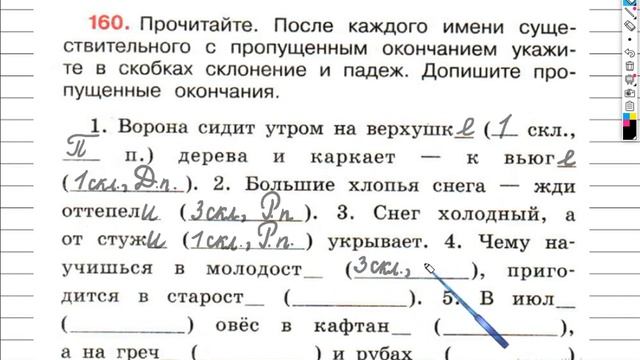 160. Прочитайте. После каждого имени суще-
ствительного с пропущенным окончанием укажи-
те в скобках склонение и падеж. Допишите про-
пущенные окончания.
1. Ворона сидит утром на верхушке (1 скл.,
П п.) дерева и каркает — к вьюге
(1скл., Д.п.). 2. Большие хлопья снега — жди
оттепели (3скл., Р.п.). 3. Снег холодный, а
от стужи (1скл., Р.п.) укрывает. 4. Чему на-
учишься в молодост_ (3скл., ____), приго-
дится в старост_ (________). 5. В июл_
(________) овёс в кафтан_ (________),
а на греч__ (________) и рубах_ (________